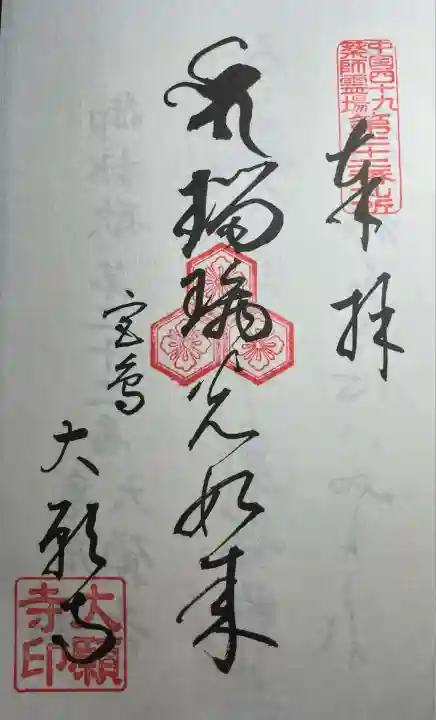 中国四十九
薬師霊場第二十二番札所
奉拝
瑠璃光如来
宮島
大願寺
大願
寺印